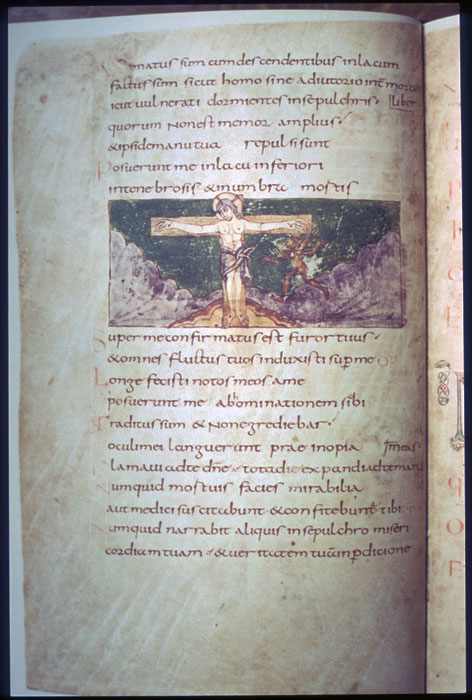 matus sum cum descendentibus inlacum
factus sum sicut homo sine adiutorio int mortu
icut uulnerati dormientes insepulchris · liber
quorum nonest memor amplius ·
&ipsidemanutua repulsisunt
Posuerunt me inlacu inferiori
intenebrosis &inumbra mortis
Super me confirmatus est furor tuus ·
&omnes fluctus tuos induxisti sup me
Longe fecisti notos meos ame
posuerunt me abominationem sibi
Traditus sum & nonegrediebar ·
oculimei languerunt prae inopia meas
lamaui adte dne · totadie expandi adteman
Numquid mortuis facies mirabilia
aut medici suscitabunt · &confitebunt tibi
Numquid narrabit aliquis insepulchro miseri
cordiam tuam · &ueritatem tuam inperditione